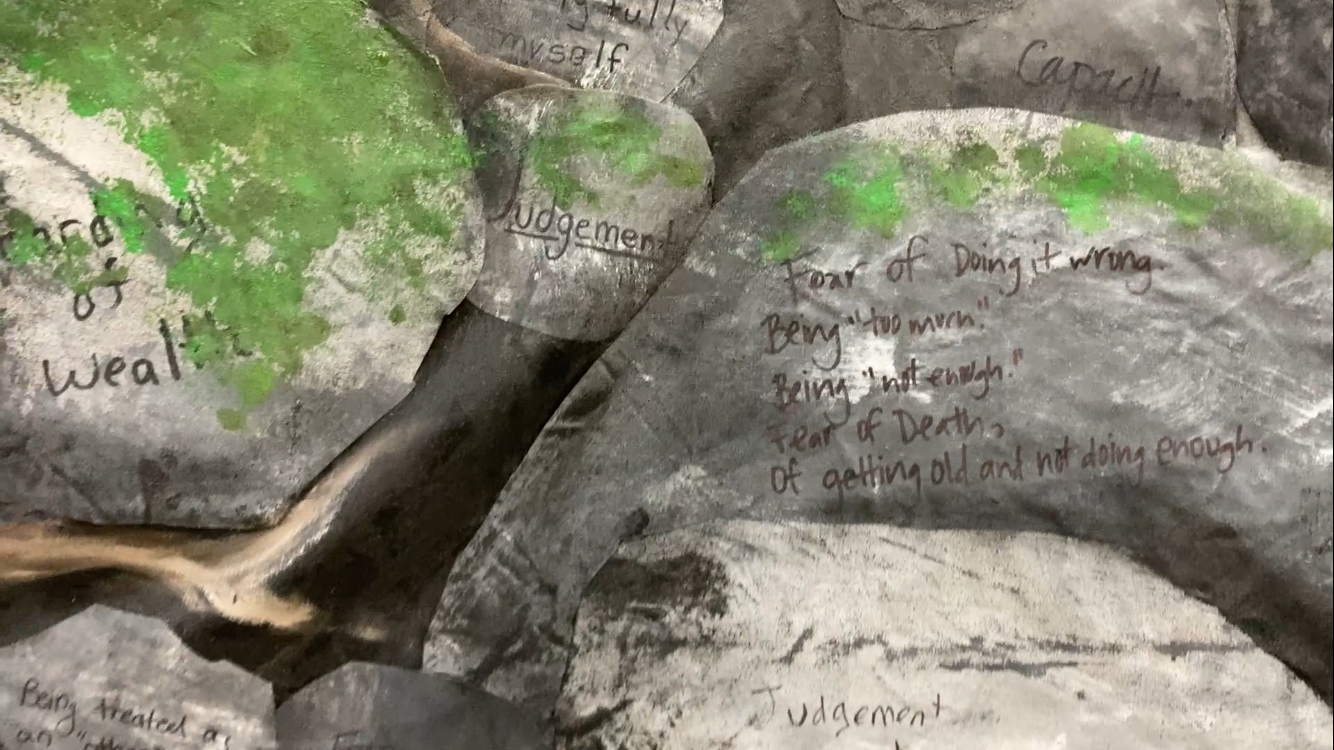 fully
myself
Capacit
of
Wealth
Judgement
Fear of Doing it wrong.
Being "too much."
Being "not enough."
Fear of Death,
Of getting old and not doing enough.
Being treated as
an
Judgement